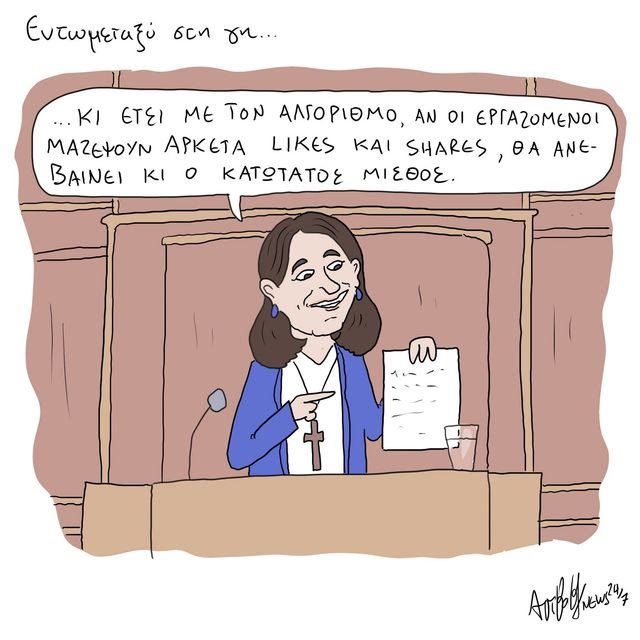 Εντωμεταξύ στη γη...
...ΚΙ ΕΤΣΙ ΜΕ ΤΟΝ ΑΛΓΟΡΙΘΜΟ, ΑΝ ΟΙ ΕΡΓΑΖΟΜΕΝΟΙ
ΜΑΖΕΨΟΥΝ ΑΡΚΕΤΑ LIKES ΚΑΙ SHARES, ΘΑ ΑΝΕ-
ΒΑΙΝΕΙ ΚΙ Ο ΚΑΤΩΤΑΤΟΣ ΜΙΣΘΟΣ.
NEWS 24/7